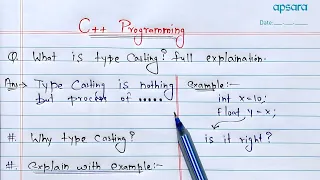 apsara
Date:
C++ Programming
Q. What is type Casting? full explaination.
Ans→ Type Casting is nothing
but process of .....
example:-
int x=10;
float y=x;
#. Why type Casting?
is it right?
#. Explain with example:-